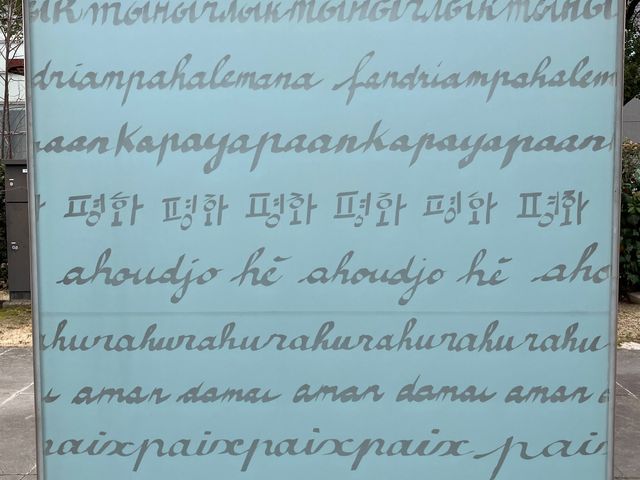 driampahalemana fandriampahalem
aankapayapaankapayapaan
평화 평화 평화 평화 평화 평화
ahoudjo hē ahoudjo hē aho
hurahurahurahurahurahurahu
aman damai aman damai aman
aixpaixpaixpaix pai